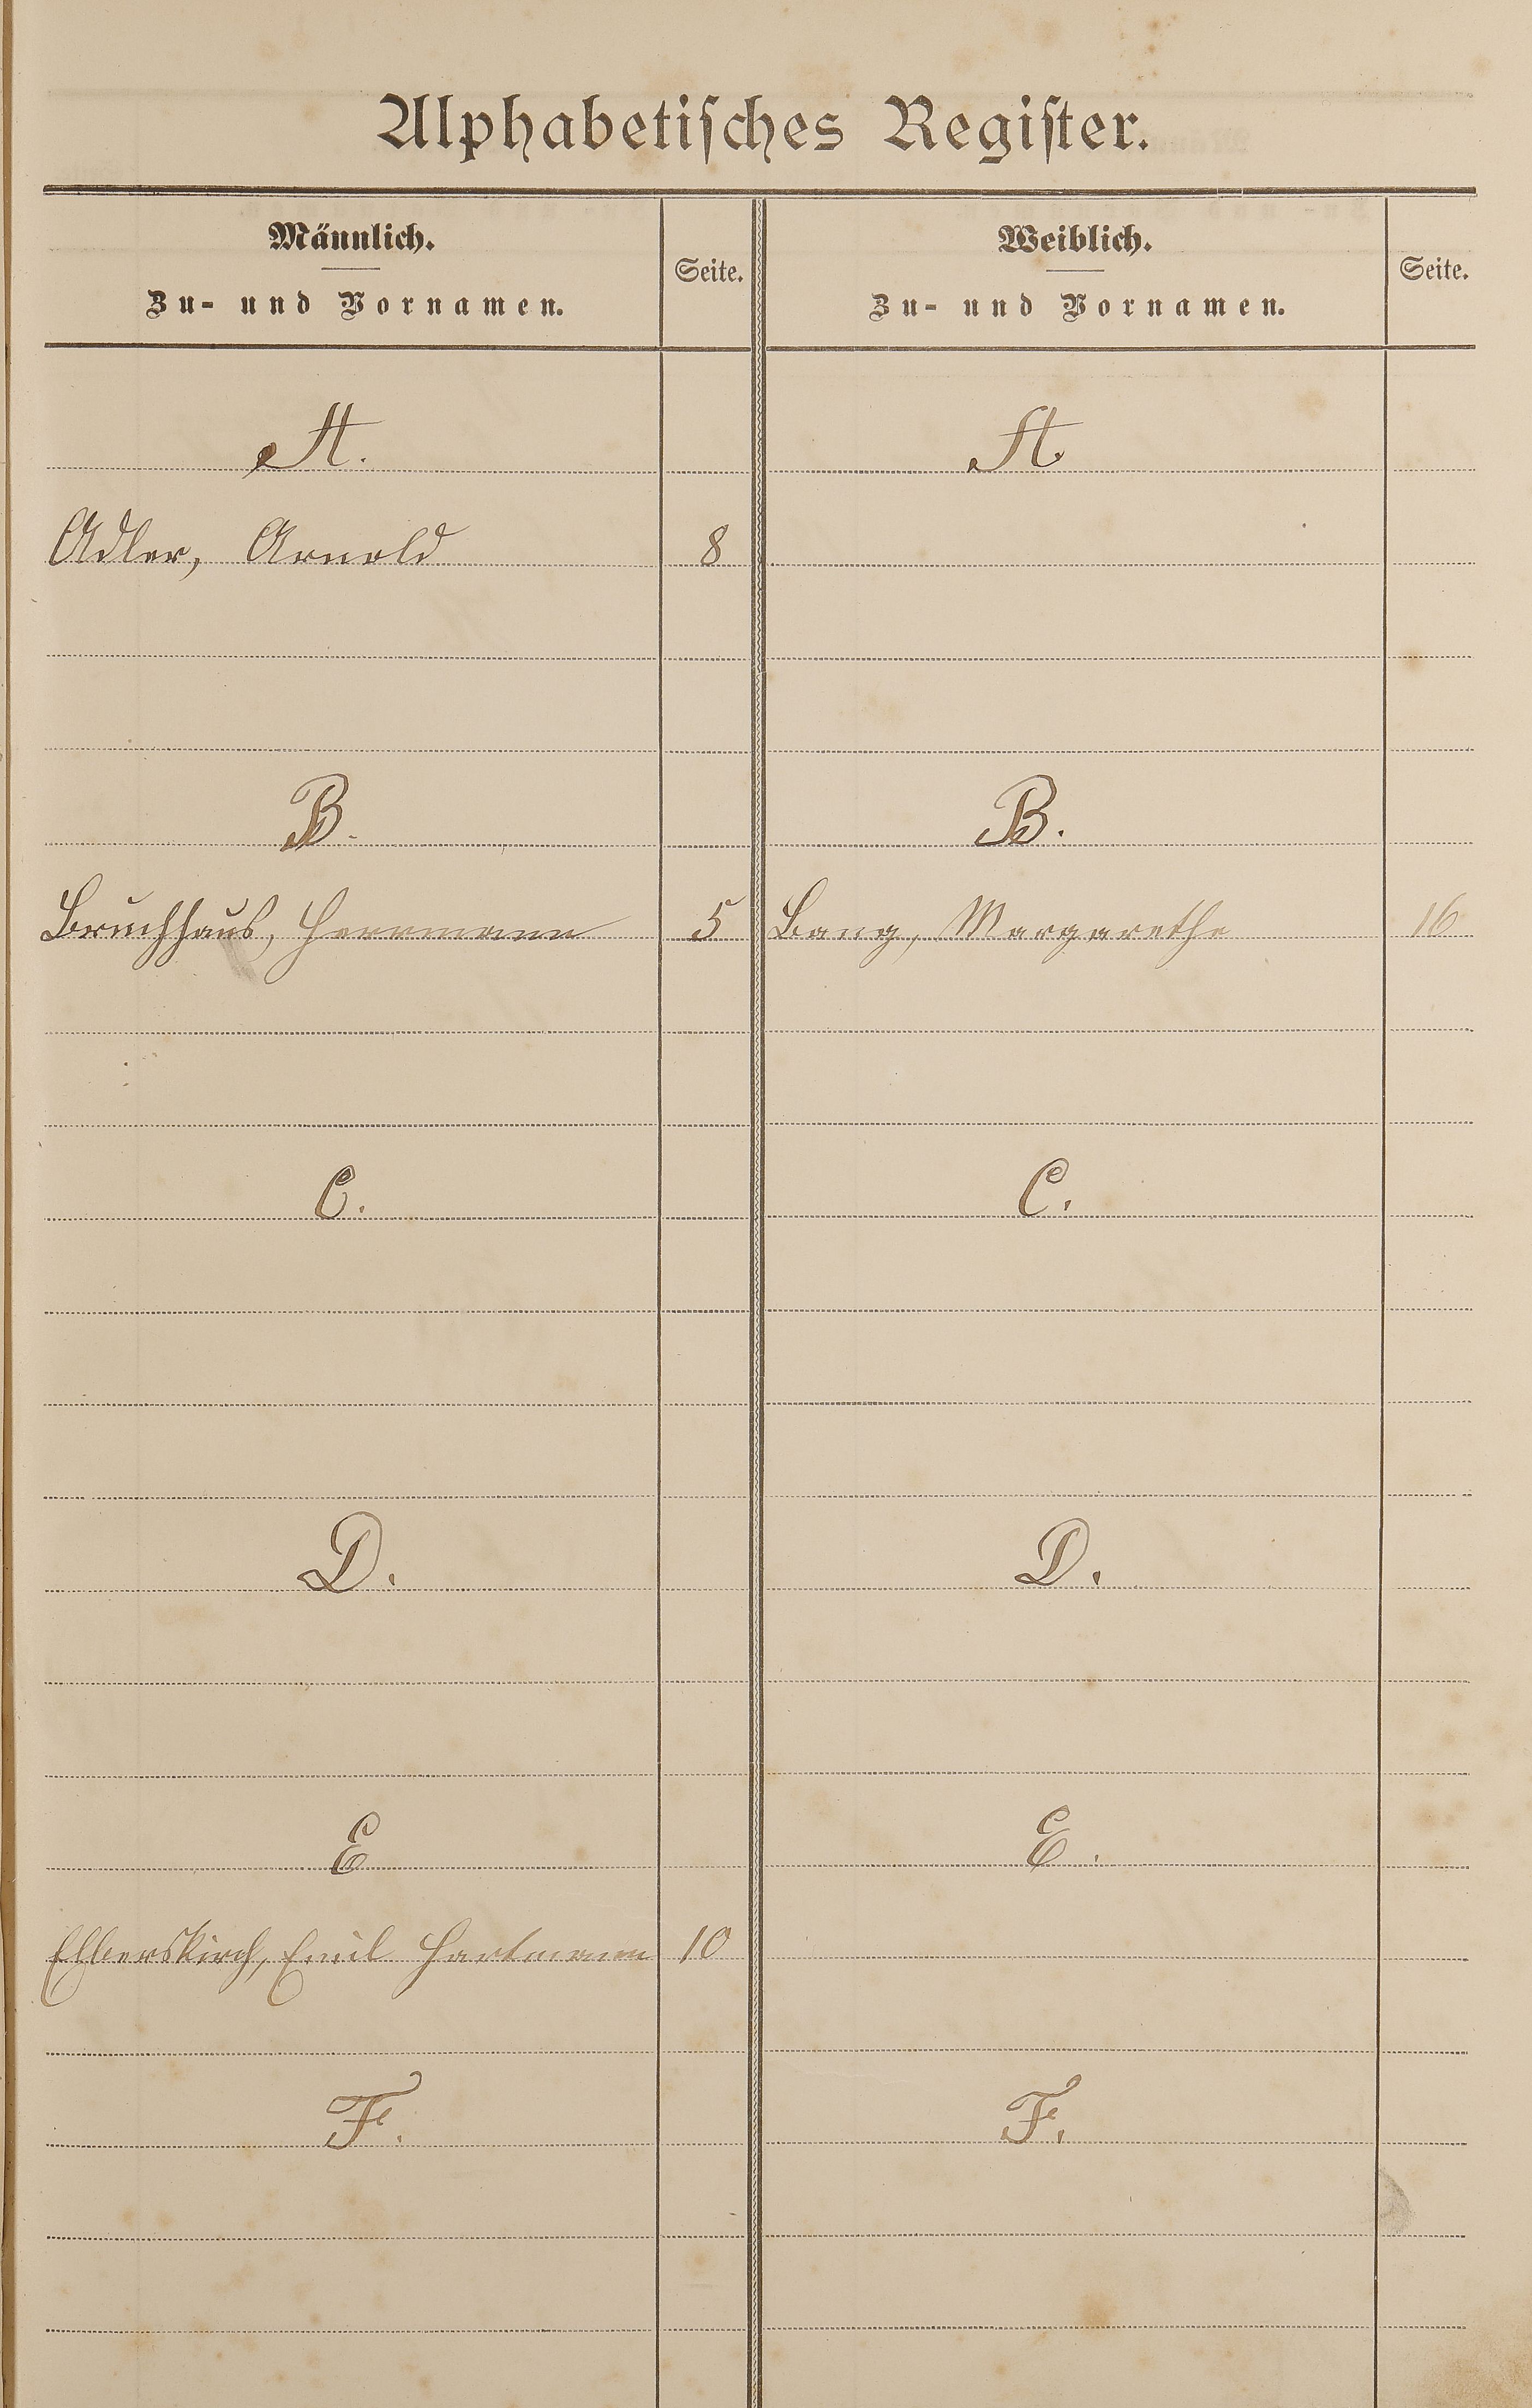 Alphabetisches Register.
Männlich.
Zu- und Vornamen.
Seite.
Weiblich.
Zu- und Vornamen.
Seite.
A. A.
Adler, Arnold 8
B. B.
Bruchhaus, Herrmann 5 Bang, Margarethe 16
C. C.
D. D.
E E.
Elberskirch, Emil Hartmann 10
F. F.